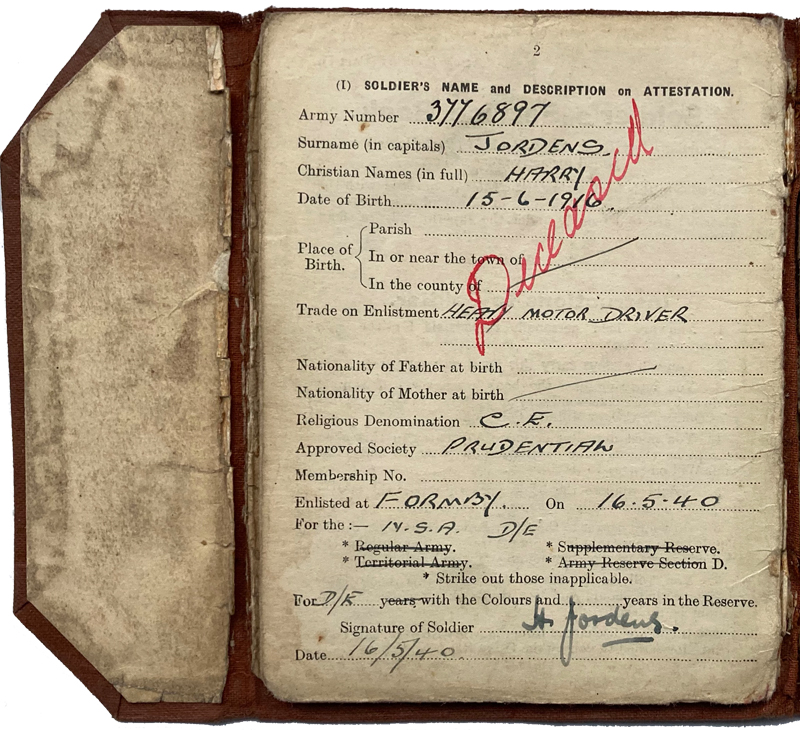 2
(I) SOLDIER'S NAME and DESCRIPTION on ATTESTATION.
Army Number 3776897
Surname (in capitals) JORDENS
Christian Names (in full) HARRY
Date of Birth 15-6-1916
Deceased
Place of Birth.
Parish
In or near the town of
In the county of
Trade on Enlistment HEAVY MOTOR DRIVER
Nationality of Father at birth
Nationality of Mother at birth
Religious Denomination C.E.
Approved Society PRUDENTIAL
Membership No.
Enlisted at FORMBY. On 16.5.40
For the :— N.S.A. D/E
* Regular Army. * Supplementary Reserve.
* Territorial Army. * Army Reserve Section D.
* Strike out those inapplicable.
For D/E years with the Colours and years in the Reserve.
Signature of Soldier H. Jordens.
Date 16/5/40.